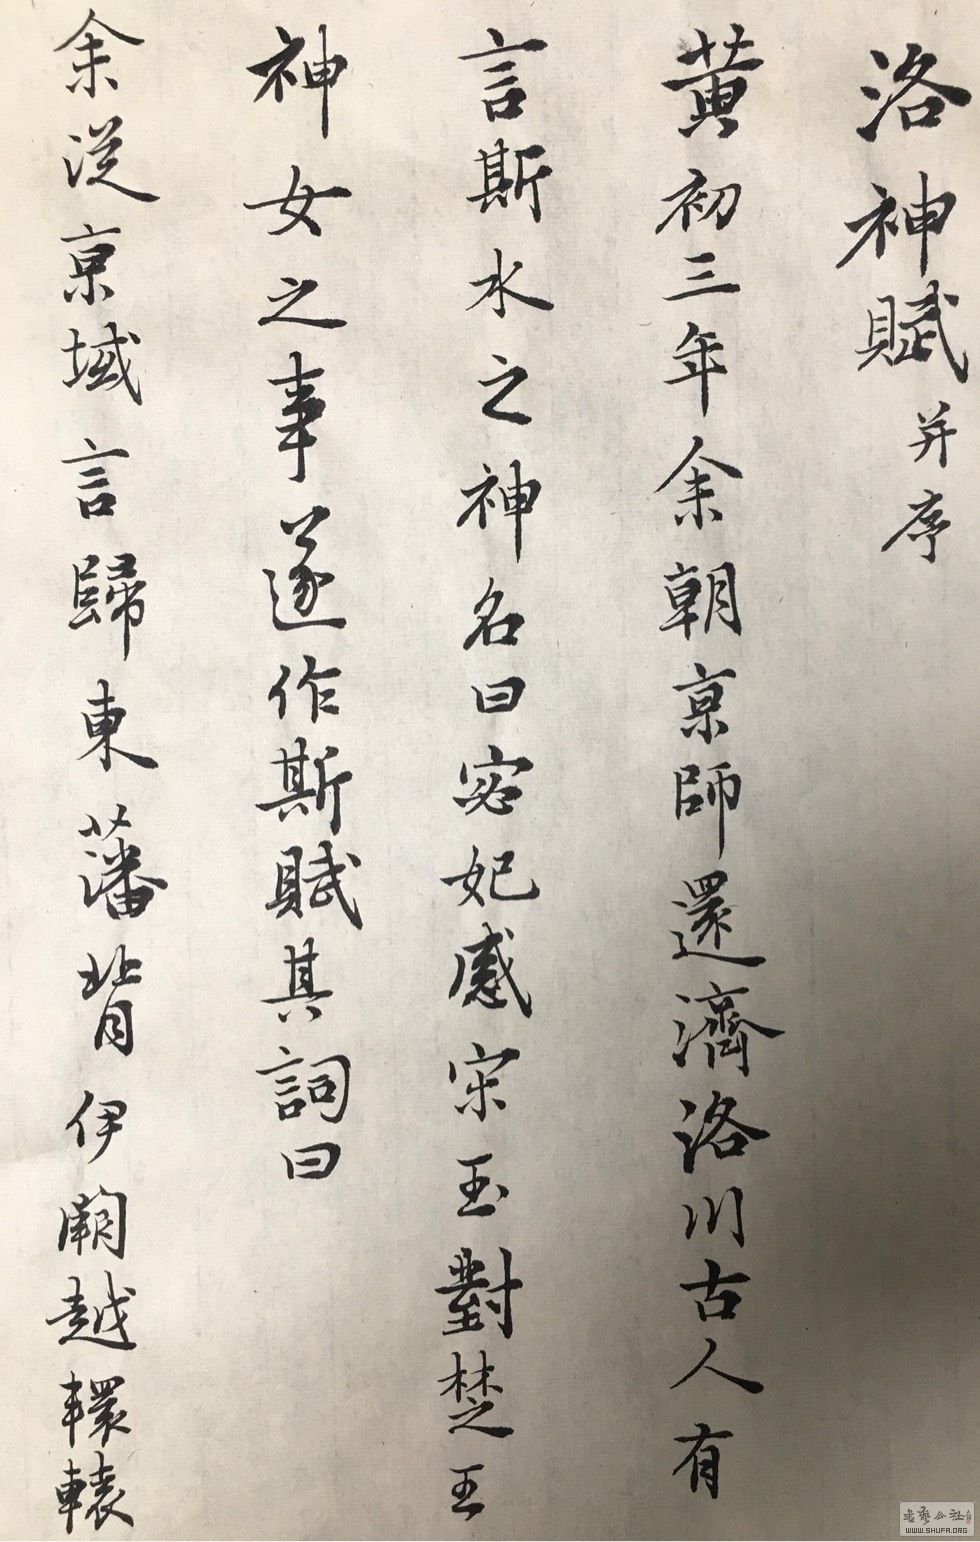 洛神賦并序
黄初三年余朝京師還濟洛川古人有
言斯水之神名曰宓妃感宋玉對楚王
神女之事遂作斯賦其詞曰
余從京域言歸東藩背伊闕越轘轅
WWW.SHUFA.ORG